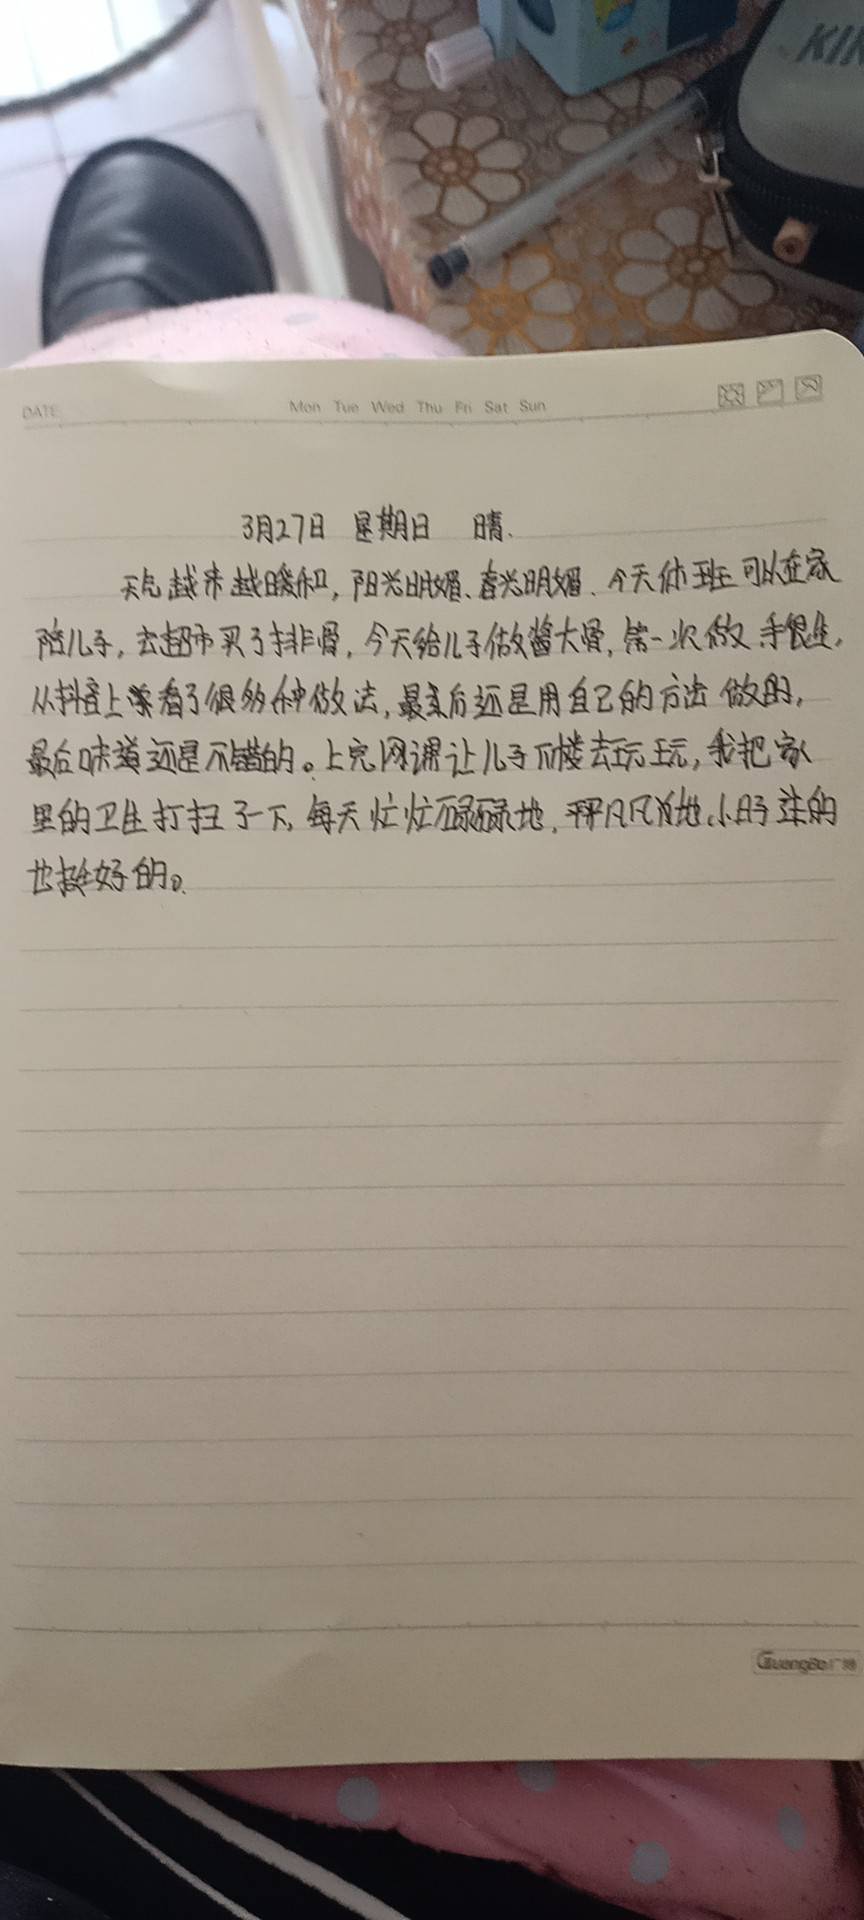 KIN
DATE
Mon Tue Wed Thu Fri Sat Sun
3月27日 星期日 晴.
天气越来越暖和,阳光明媚、春光明媚.今天休班可以在家
陪儿子,去超市买了排骨,今天给儿子做酱大骨,第一次做手很生,
从抖音上看了很多种做法,最后还是用自己的方法做的,
最后味道还是不错的。上完网课让儿子下楼去玩玩,我把家
里的卫生打扫了一下,每天忙忙碌碌地,平平凡凡地小日子过的
也挺好的。
GuangBo广博